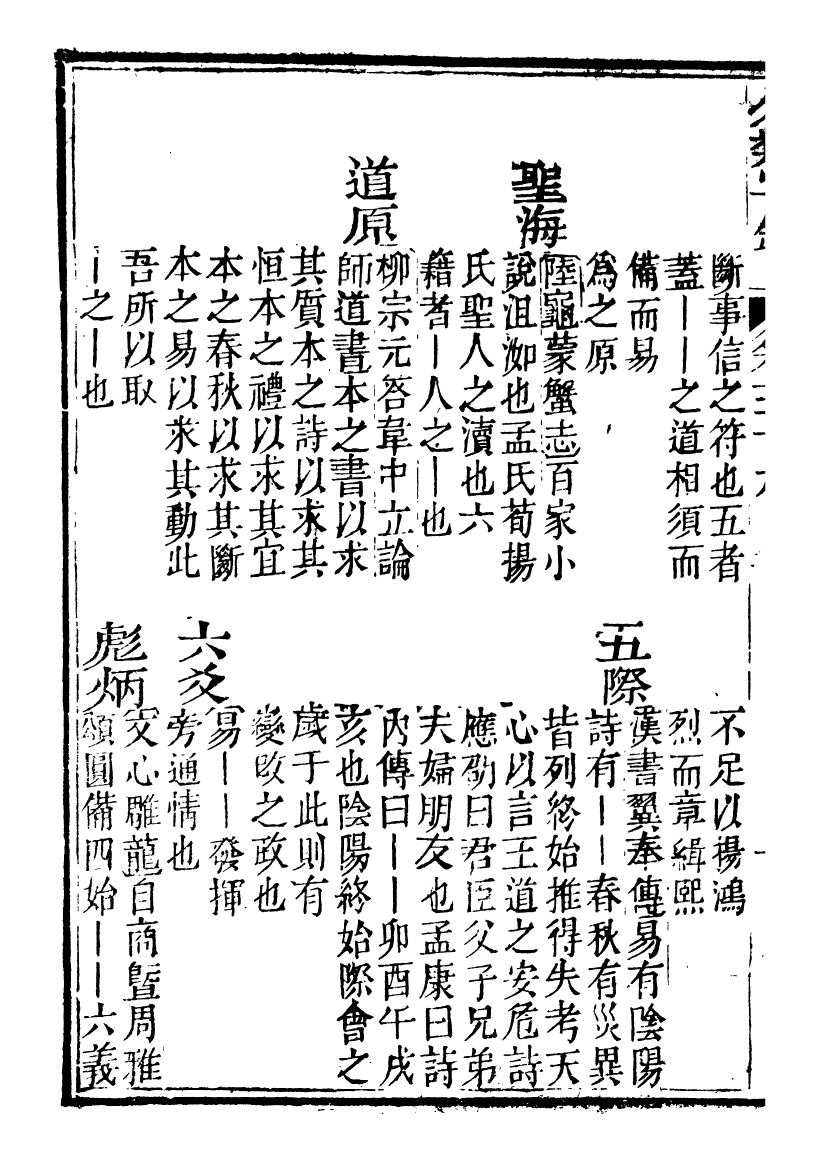 斷事信之符也五者
蓋｜｜之道相須而
備而易
爲之原
聖海
陸龜蒙蟹志百家小
說沮洳也孟氏荀揚
氏聖人之瀆也六
籍者｜人之｜也
道原
柳宗元答韋中立論
師道書本之書以求
其質本之詩以求其
恒本之禮以求其宜
本之春秋以求其斷
本之易以求其動此
吾所以取
｜之｜也
不足以揚鴻
烈而章緝熙
五際
漢書翼奉傳易有陰陽
詩有｜｜春秋有災異
皆列終始推得失考天
心以言王道之安危詩
應劭曰君臣父子兄弟
夫婦朋友也孟康曰詩
內傳曰｜｜卯酉午戌
亥也陰陽終始際會之
歲于此則有
變改之政也
六爻
易｜｜發揮
旁通情也
彪炳
文心雕龍自商曁周雅
頌圓備四始｜｜六義